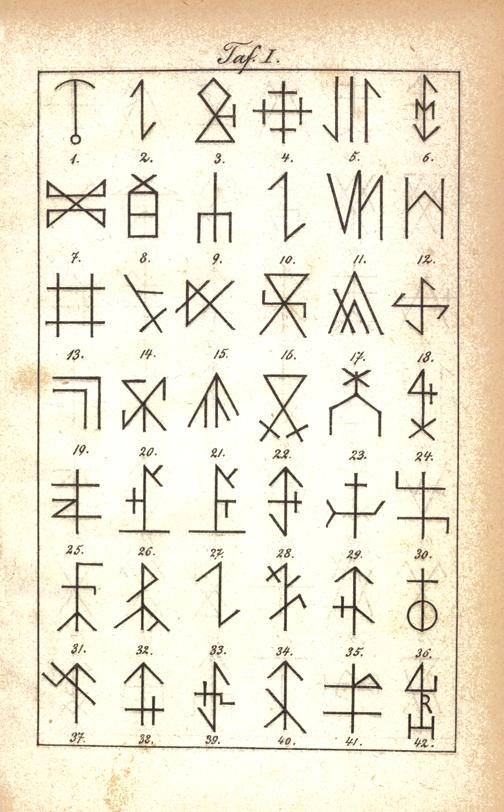 Taf. I.
1. 2. 3. 4. 5. 6.
7. 8. 9. 10. 11. 12.
13. 14. 15. 16. 17. 18.
19. 20. 21. 22. 23. 24.
25. 26. 27. 28. 29. 30.
31. 32. 33. 34. 35. 36.
R
37. 38. 39. 40. 41. 42.